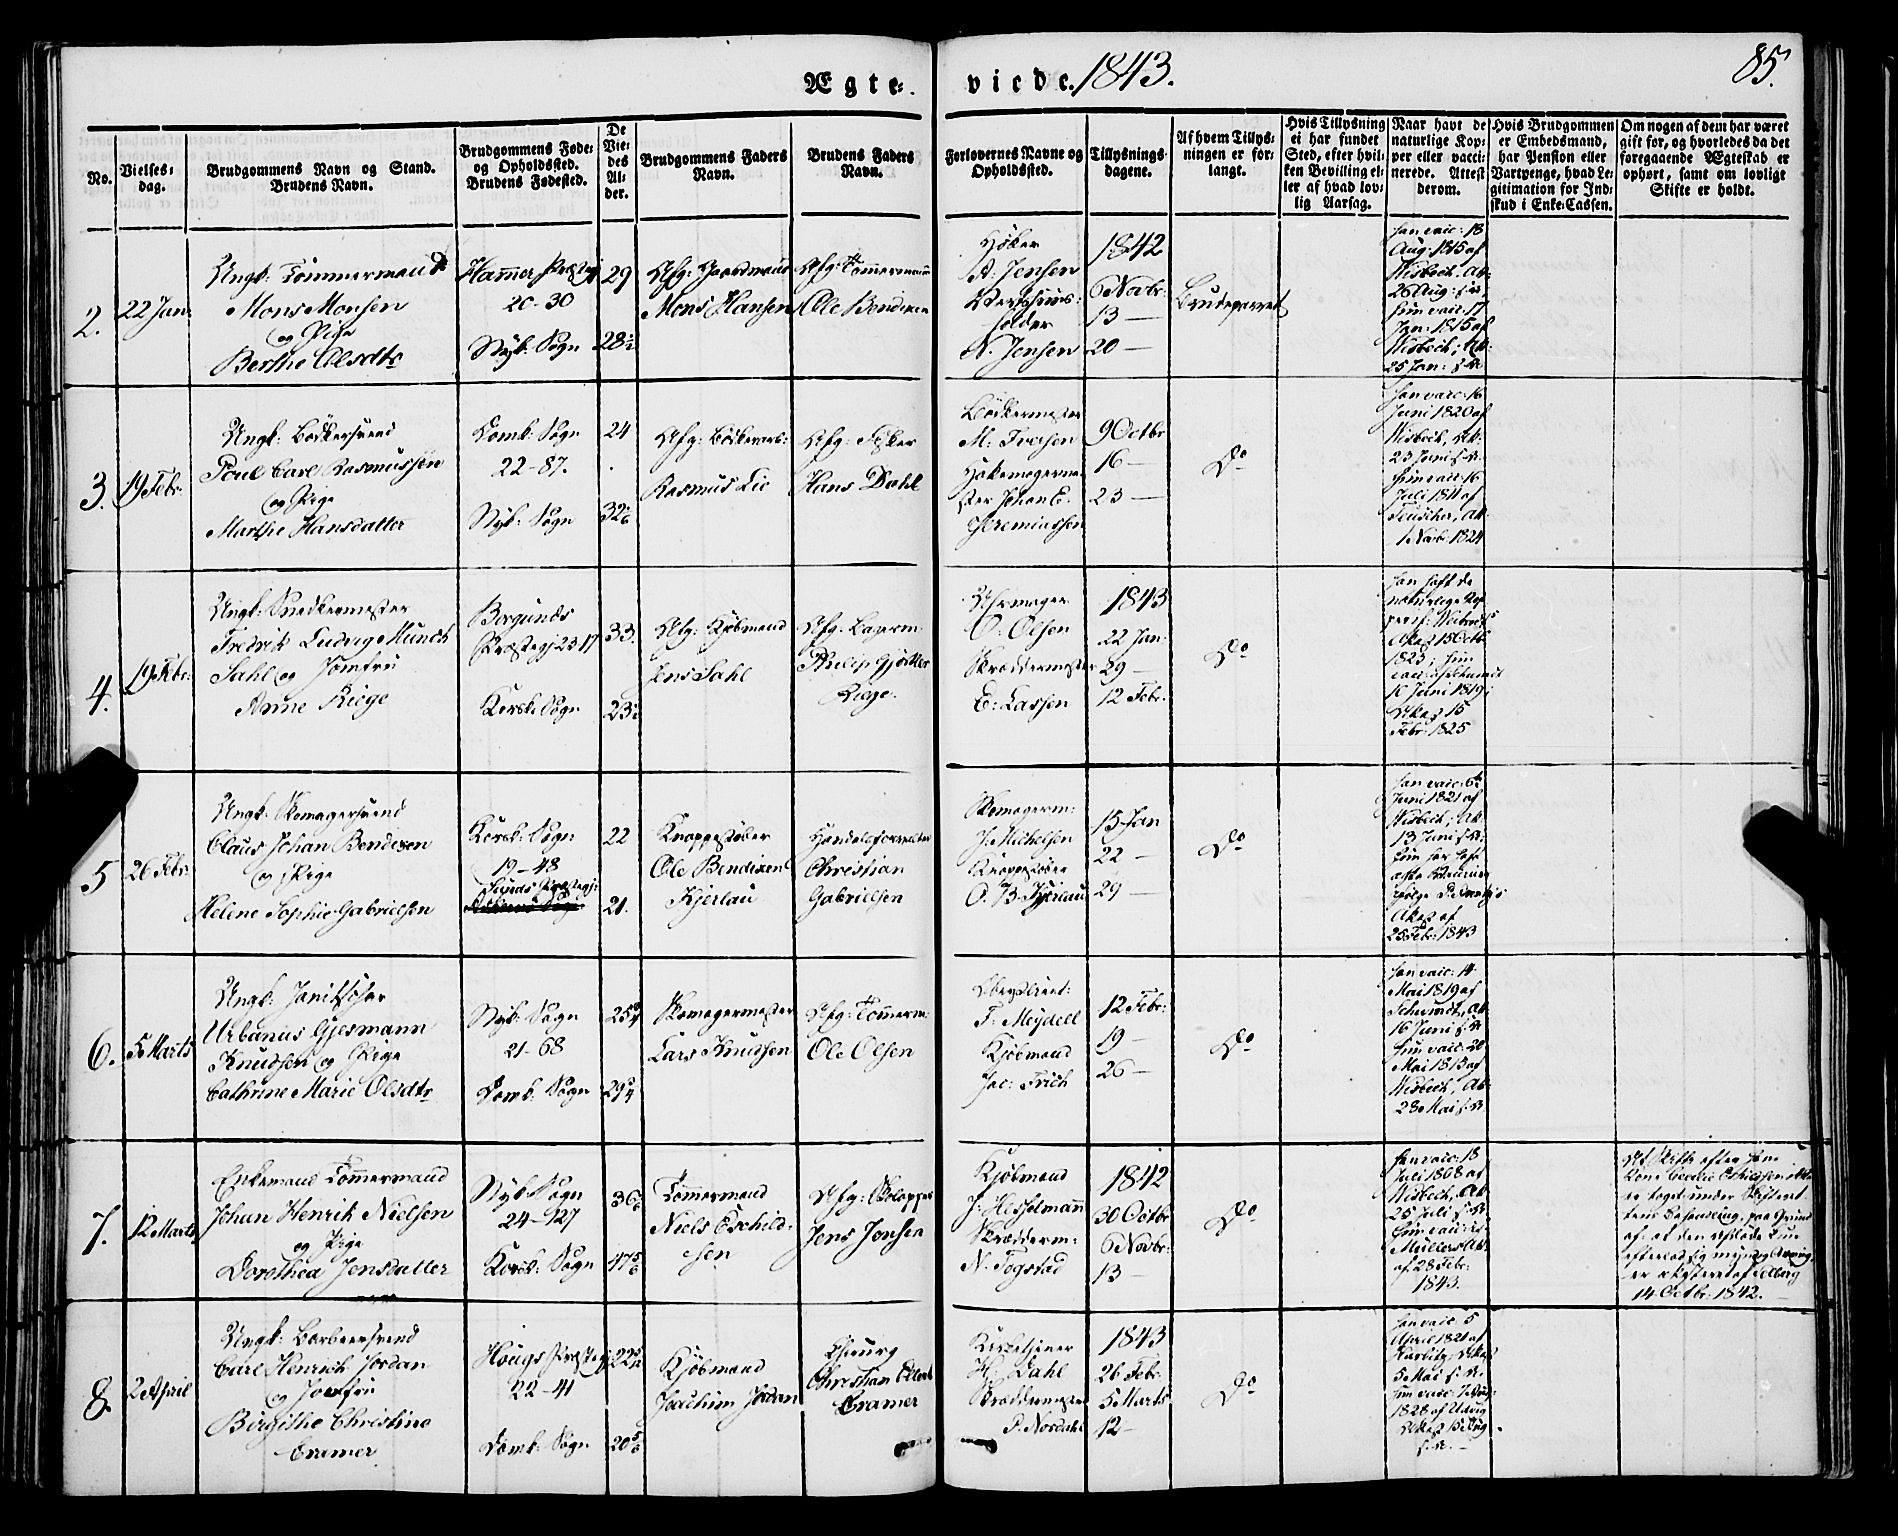 Ægte- viede. 1843. 85.
No.
Vielses-
dag.
Brudgommens Navn og Stand.
Brudens Navn.
Brudgommens Føde-
og Opholdssted.
Brudens Fødested.
De
Vie-
des
Al-
der.
Brudgommens Faders
Navn.
Brudens Faders
Navn.
Forlovernes Navne og
Opholdssted.
Tillysnings-
dagene.
Af hvem Tillys-
ningen er for-
langt.
Hvis Tillysning
ei har fundet
Sted, efter hvil-
ken Bevilling el-
ler af hvad lov-
lig Aarsag.
Naar havt de
naturlige Kop-
per eller vacci-
nerede. Attest
derom.
Hvis Brudgommen
er Embedsmand,
har Pension eller
Vartpenge, hvad Le-
gitimation for Ind-
skud i Enke-Cassen.
Om nogen af dem har været
gift før, og hvorledes da det
foregaaende Ægteskab er
ophørt, samt om lovligt
Skifte er holdt.
2.
22 Jan:
Ungk: Tømmermand
Mons Monsen
og Pige
Berthe Olsdtr
Hammer Præstegj
20-30
Nyk: Sogn
29
28½
Afg: Gaardmand
Mons Hansen
Afg: Tømmermand
Ole Bendixen
Høker
A. Jensen
Vertshuus-
holder
N. Jensen
1842
6 Novbr:
13 —
20 —
Brudeparret
Han vacc: 18
Aug: 1815 af
Wisbech, At:
26 Aug: s. A.
Hun vacc: 17
Jan: 1815 af
Wisbech; At:
25 Jan: s. A.
3.
19 Febr:
Ungk: Bødkersvend
Poul Carl Rasmussen
og Pige
Marthe Hansdatter
Domk: Sogn
22-87.
Nyk: Sogn
24
32
Afg: Bødkerarb:
Rasmus Lie
Afg: Fisker
Hans Dahl
Bødkermester
M: Iversen
ster Johan E.
Jeremiassen
9 Octbr
16 —
23 —
Do
Han vacc: 16
Juni 1820 af
Wisbech, At:
23 Juni s. A.
Hun vacc: 16
Juli 1811 af
Teuscher, At:
1 Novbr: 1824
4.
19 Febr:
Ungk: Snedkermester
Fredrik Ludvig Munch
Sahl og Jomfru
Anne Riege
Borgunds
Præstegj 23-17
Korsk: Sogn
33.
23½
Afg: Kjøbmand
Jens Sahl
Afg: Lagerm:
Philip Gjørtler
Riege.
Uhrmager
O: Olsen
Skræddermester
E: Lassen
1843
22 Jan:
29 —
12 Febr:
Do
Han havt de
naturlige Kop
Attest 15 Octbr
1823; Hun
10 Juni 1819;
Attest 15
Febr: 1825
5
26 Febr:
Ungk: Skomagersvend
Claus Johan Bendixen
og Pige
Helene Sophie Gabrielsen
Korsk: Sogn
19-48
Sunds Præstegj:
22
21.
Knappestøber
Ole Bendixen
Kjerlau
Handelsforvalter
Christian
Gabrielsen
Skomagerm:
J: Michelsen
Knappestøber
O. B. Kjerlau
15 Jan
22 —
29 —
Do
Han vacc: 6te
Juni 1821 af
Wisbech; At:
13 Juni s. A:
Attest af
25 Febr: 1843
6.
5 Marts
Ungk: Janitschar
Urbanus Gjesmann
Knudsen og Pige
Cathrine Marie Olsdtr
Nyk: Sogn
21-68
Domk: Sogn
25¾
29¾
Skomagermester
Lars Knudsen
Afg: Tømmerm:
Ole Olsen
Oberstlieut:
T: Meydell
Kjøbmand
Jac: Frich
12 Febr:
19 —
26 —
Do
Han vacc: 14
Mai 1819 af
Schwindt, At:
16 Juni s. A.
Hun vacc: 20
Mai 1813 af
Wisbech, At:
28 Mai s. A.
7.
12 Marts
Enkemand Tømmermand
Johan Henrik Nielsen
og Pige
Dorothea Jensdatter
Nyk: Sogn
24-127
Korsk: Sogn
36
47⅚
Tømmermand
Niels Eschild-
sen
Afg: Skolopper
Jens Jonsen
Kjøbmand
J: Hesselmann
Skrædderm:
N. Fogstad
1842
30 Octbr
6 Novbr:
13 —
Do
Han vacc: 18
Juli 1808 af
Wisbech, At:
25 Juli s. A.
Hun vacc: af
Müller, At:
af 28 Febr:
1843.
At Skifte efter hans
er attesteret af Feldberg
14 Octbr: 1842. —
8.
2 April
Ungk: Barbeersvend
Carl Henrich Jordan
og Jomfru
Birgithe Christine
Cramer
Hougs Præstegj
22-41
Domk: Sogn
22
20⅚
Kjøbmand
Joachim Jordan
Chirurg
Christian
Cramer
Kirketjener
H: Dahl
Skræddermester
P. Nordahl
1843
26 Febr:
5 Marts
12 —
Do
Han vacc: 5
April 1821 af
5 Mai s. A.
1828 af
s. A. —